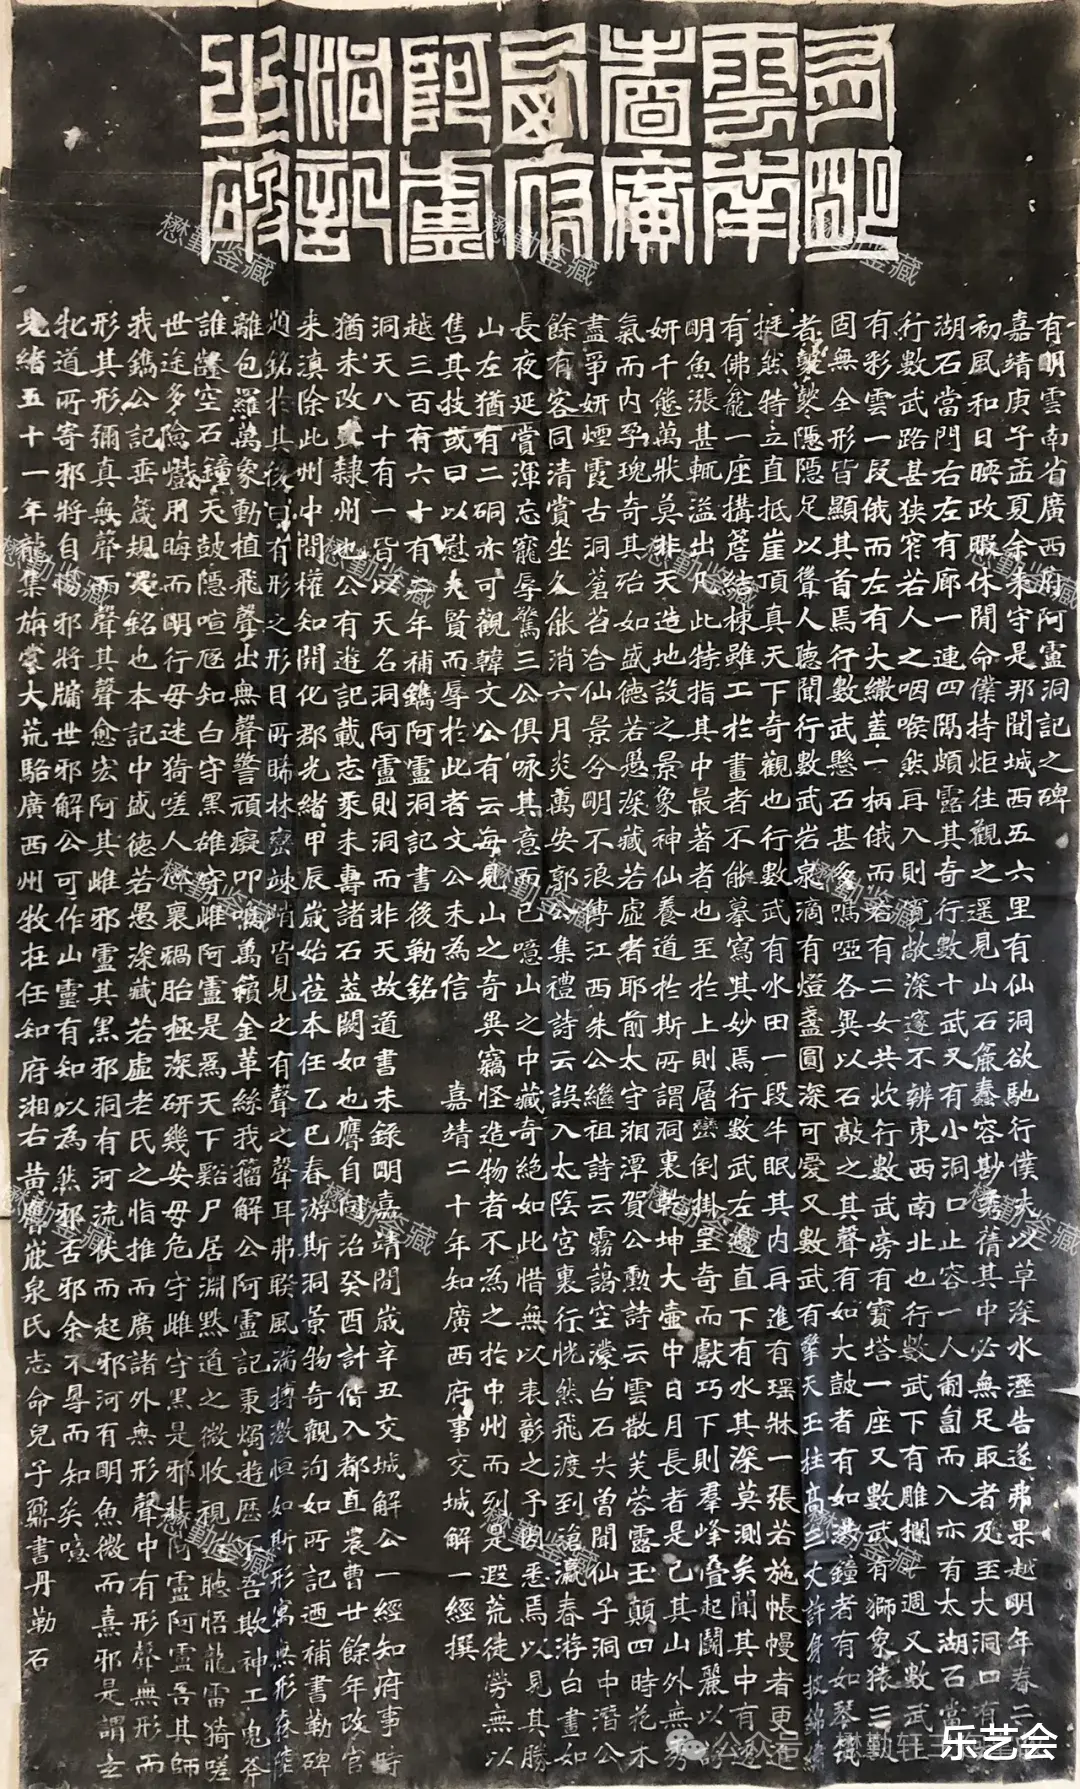 有明
雲南
省廣
西府
阿盧
洞記
之碑
有明雲南省廣西府阿盧洞記之碑
嘉靖庚子孟夏余来守是邪聞城西五六里有仙洞欲馳行僕夫以草深水溼告遂弗果越明年春三
初風和日暎政暇休閒命僕持炬往觀之遥見山石麄蠢容尠秀蒨其中必無足取者及至大洞口有
湖石當門右左有廊一連四隅頗露其奇行數十武又有小洞口止容一人匍匐而入亦有太湖石當
行數武路甚狹窄若人之咽喉然再入則寬敞深邃不辨東西南北也行數武下有雕欄一週又數武
有彩雲一段俄而左有大繖蓋一柄俄而若有二女共炊行數武旁有寶塔一座又數武有獅象猿三
固無全形皆顯其首焉行數武懸石甚多鳴啞各異以石敲之其聲有如大鼓者有如洪鐘者有如琴
者聲隱隱足以聳人聽聞行數武岩泉滴有燈盞圓深可愛又數武有擎天玉柱高三丈許身披錦
挺然特立直抵崖頂真天下奇觀也行數武有水田一段牛眠其内再進有瑶牀一張若施帳幔者更進
有佛龕一座搆簷結棟雖工於畫者不能摹寫其妙焉行數武左邊直下有水其深莫測矣聞其中有
明魚漲甚輒溢出凡此特指其中最著者也至於上則層巒倒掛呈奇而獻巧下則羣峰疊起鬪麗以
妍千態萬狀莫非天造地設之景象神仙養道於斯所謂洞裏乾坤大壷中日月長者是已其山外無秀
氣而内孕瑰奇其殆如盛德若愚深藏若虚者耶前太守湘潭賀公勲詩云雲散芙蓉露玉顛四時花木
盡爭妍煙霞古洞蒼苔洽仙景分明不浪傳江西朱公繼祖詩云霧藹空濛白石尖曽聞仙子洞中潛公
餘有客同清賞坐久能消六月炎萬安郭公集禮詩云誤入太陰宮裏行恍然飛渡到滄瀛春游白晝如
長夜延賞渾忘寵辱驚三公俱咏其意而已噫山之中藏奇絶如此惜無以表彰之予因悉焉以見其勝
山左猶有二硐亦可觀韓文公有云每見山之奇異竊怪造物者不為之於中州而列是遐荒徒勞無以
售其技或曰以慰夫賢而辱於此者文公未為信　嘉靖二十年知廣西府事交城解一經撰
越三百有六十有年補鐫阿盧洞記書後勒銘
洞天八十有一皆以天名洞阿盧則洞而非天故道書未録明嘉靖間歳辛丑交城解公一經知府事時
猶未改隸州也公有遊記載志乘未壽諸石葢闕如也譍自同治癸酉計偕入都直農曹廿餘年改官
来滇除此州中間權知開化郡光緒甲辰歳始莅本任乙巳春游斯洞景物奇觀洵如所記迺補書勒碑
題銘於其後曰有形之形目所睎林巒竦峭皆見之有聲之聲耳弗聧風湍摶激恒如斯形寓無形
離包羅萬象動植飛聲出無聲警頑癡叩鳴萬籟金革絲我籀解公阿盧記秉燭遊歴不吾欺神工鬼斧
誰鑿空石鐘天鼓隱喧豗知白守黑雄守雌阿盧是焉天下谿尸居淵默道之微收視聽悟龍雷猗嗟
世途多險巇用晦而明行毋迷猗嗟人心裏禍胎極深研幾安毋危守雌守黑是邪非阿盧阿盧吾其師
我鐫公記垂箴規是銘也本記中盛德若愚深藏若虚老氏之恉推而廣諸外無形聲中有形聲無形而
形其形彌真無聲而聲其聲愈宏阿其雌邪盧其黑邪洞有河流伏而起邪河有明魚微而熹邪是謂玄
牝道所寄邪將自牖邪將牖世邪解公可作山靈有知以為然邪否邪余不得而知矣噫
光緒五十一年龍集旃蒙大荒駱廣西州牧在任知府湘右黄譍厎泉氏志命兒子鼐書丹勒石
懋勤鉴藏
公众号
乐艺会